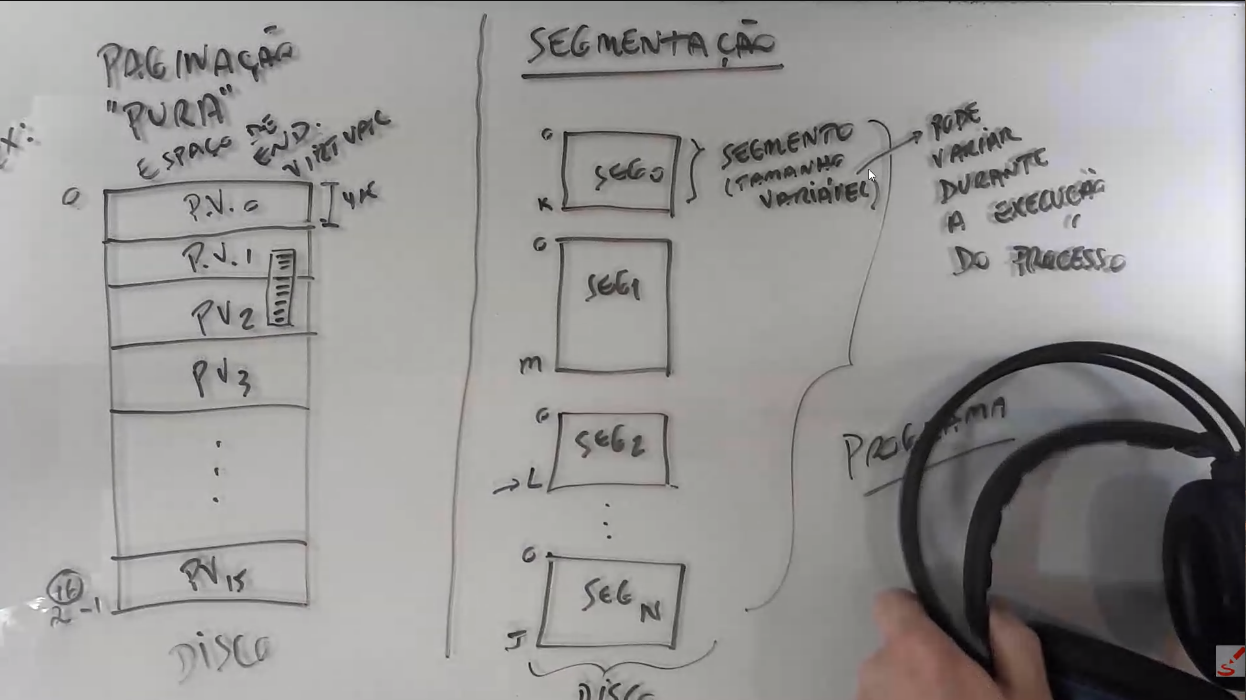 PAGINAÇÃO
"PURA"
EX:
ESPAÇO DE
END.
VIRTUAL
0
P.V.0
4K
P.V.1
PV2
PV3
PV15
2^16-1
DISCO
SEGMENTAÇÃO
0
SEG0
K
SEGMENTO
(TAMANHO
VARIÁVEL)
PODE
VARIAR
DURANTE
A EXECUÇÃO
DO PROCESSO
0
SEG1
M
0
SEG2
L
0
SEG N
J
DISCO
PROGRAMA